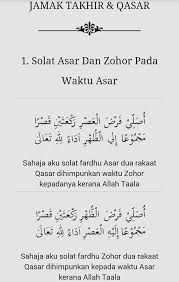 JAMAK TAKHIR & QASAR
1. Solat Asar Dan Zohor Pada
Waktu Asar
أُصَلِّيْ فَرْضَ الْعَصْرِ رَكْعَتَيْنِ قَصْرًا
مَجْمُوْعًا إِلَى الظُّهْرِ اَدَاءً لِلّٰهِ تَعَالَى
Sahaja aku solat fardhu Asar dua rakaat
Qasar dihimpunkan waktu Zohor
kepadanya kerana Allah Taala
أُصَلِّيْ فَرْضَ الظُّهْرِ رَكْعَتَيْنِ قَصْرًا
مَجْمُوْعًا إِلَيْهِ الْعَصْرِ اَدَاءً لِلّٰهِ تَعَالَى
Sahaja aku solat fardhu Zohor dua rakaat
Qasar dihimpunkan kepada waktu Asar
kerana Allah Taala